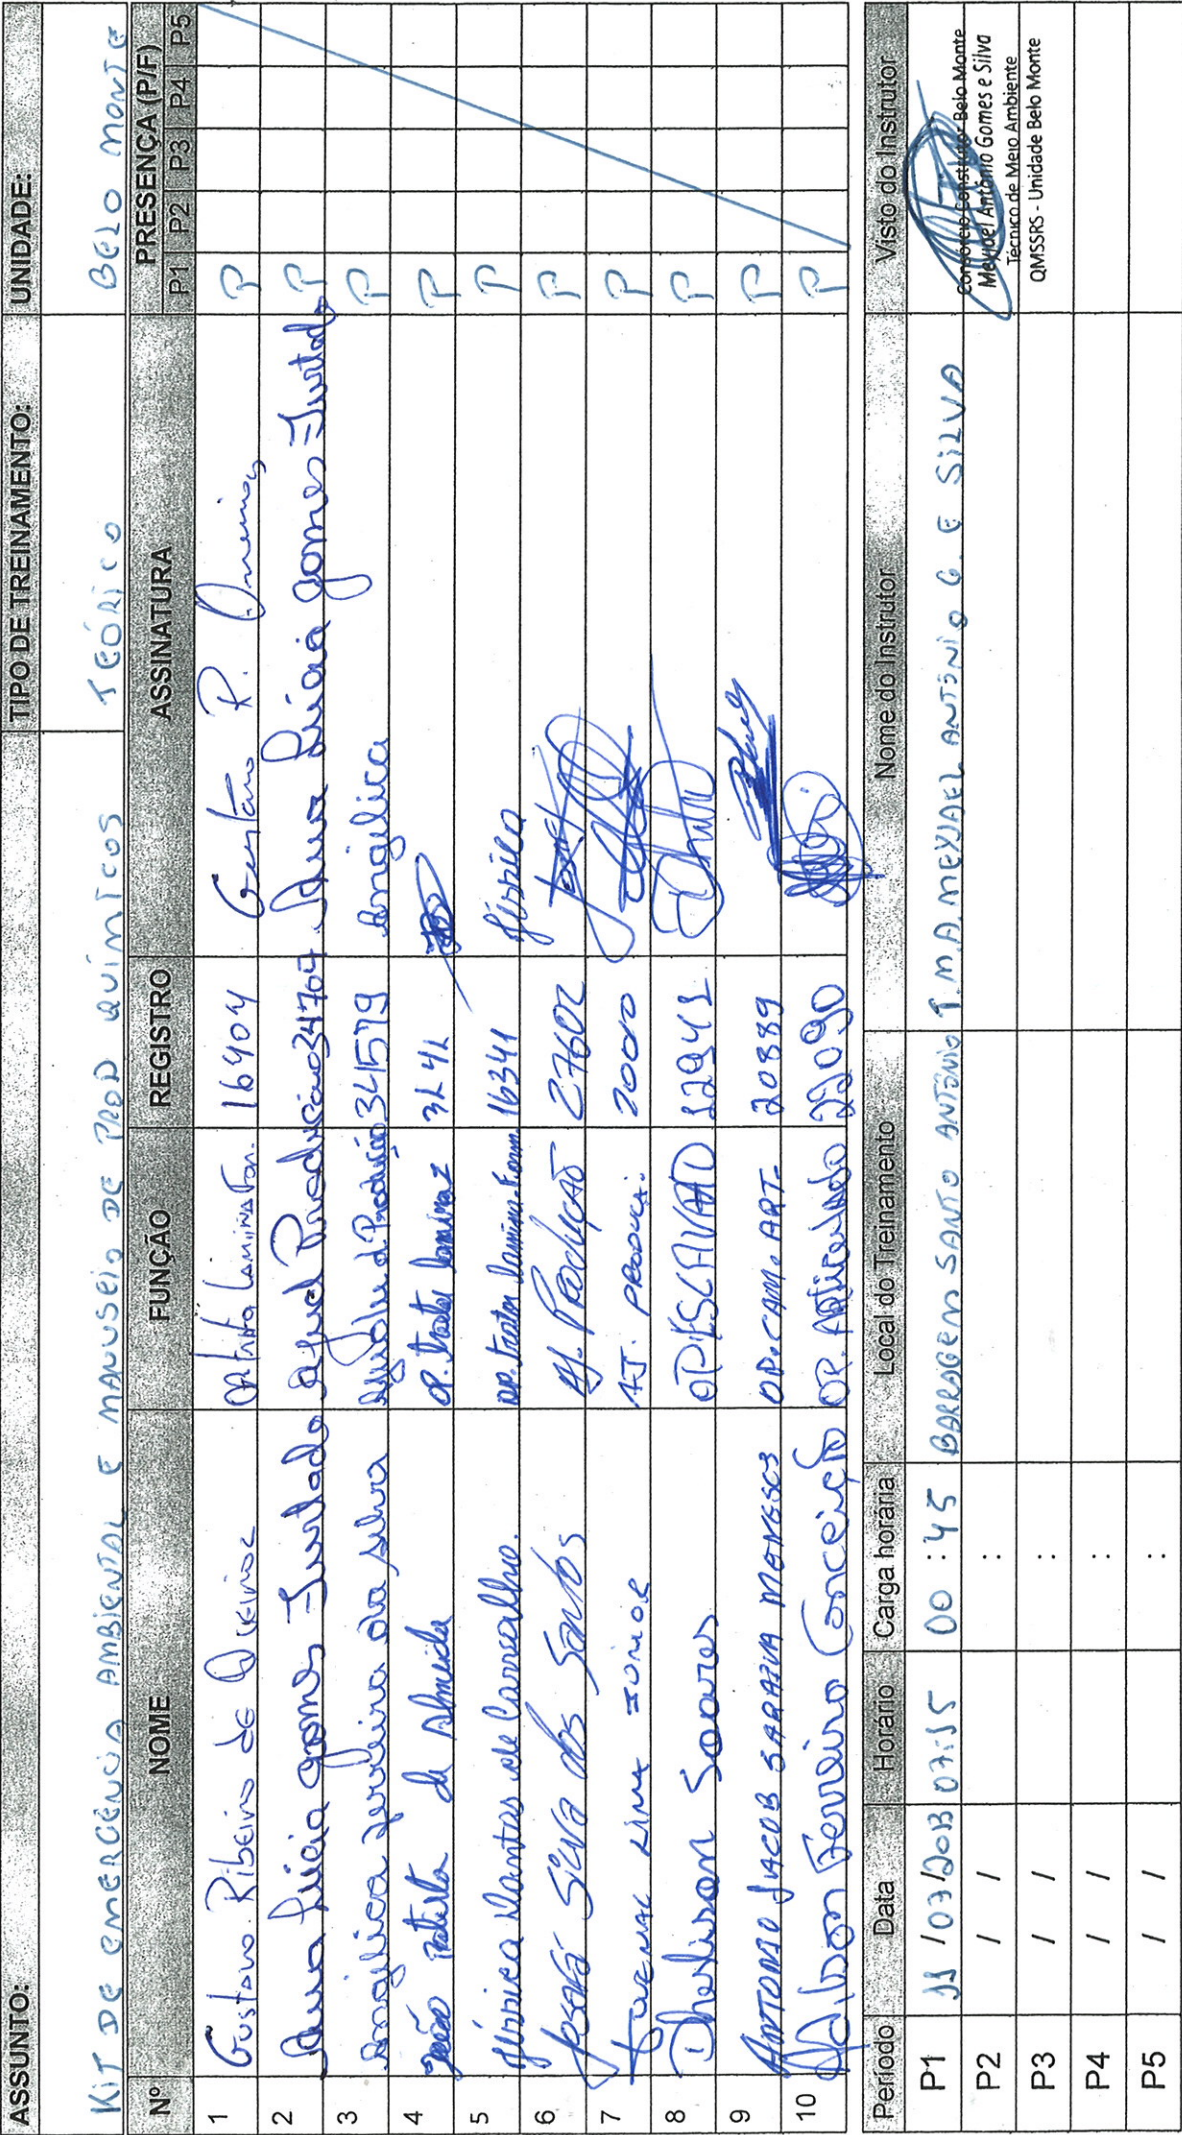 ASSUNTO: TIPO DE TREINAMENTO: UNIDADE:
KIT DE EMERGÊNCIA AMBIENTAL E MANUSEIO DE PROD QUÍMICOS TEÓRICO BELO MONTE
Nº NOME FUNÇÃO REGISTRO ASSINATURA PRESENÇA (P/F)
P1 P2 P3 P4 P5
1 Gustavo Ribeiro de 16404 Gustavo R. P
2 Lucia gomes Furtado 34704 Lucia gomes Furtado P
3 Angélica da silva 34579 Angélica P
4 João Batista de Almeida OP. trator 3141 P
5 Dantas de Carvalho. OP. trator 16341 P
6 Silva dos Santos Aj. Produção 27602 P
7 LIMA JÚNIOR AJ. 20010 P
8 Dherlison Soares 12941 P
9 ANTONIO JACOB SARAIVA MENESES OP. CAM. ART. 20889 P
10 Ferreira Conceição OP. Articulado 22090 P
Período Data Horário Carga horária Local do Treinamento Nome do Instrutor Visto do Instrutor
P1 11/07/2013 07:15 00:45 BARRAGEM SANTO ANTÔNIO T.M.A. MEYJAEL ANTÔNIO G. E SILVA
Consórcio Construtor Belo Monte
Meyjael Antônio Gomes e Silva
Técnico de Meio Ambiente
QMSSRS - Unidade Belo Monte
P2 / / :
P3 / / :
P4 / / :
P5 / / :